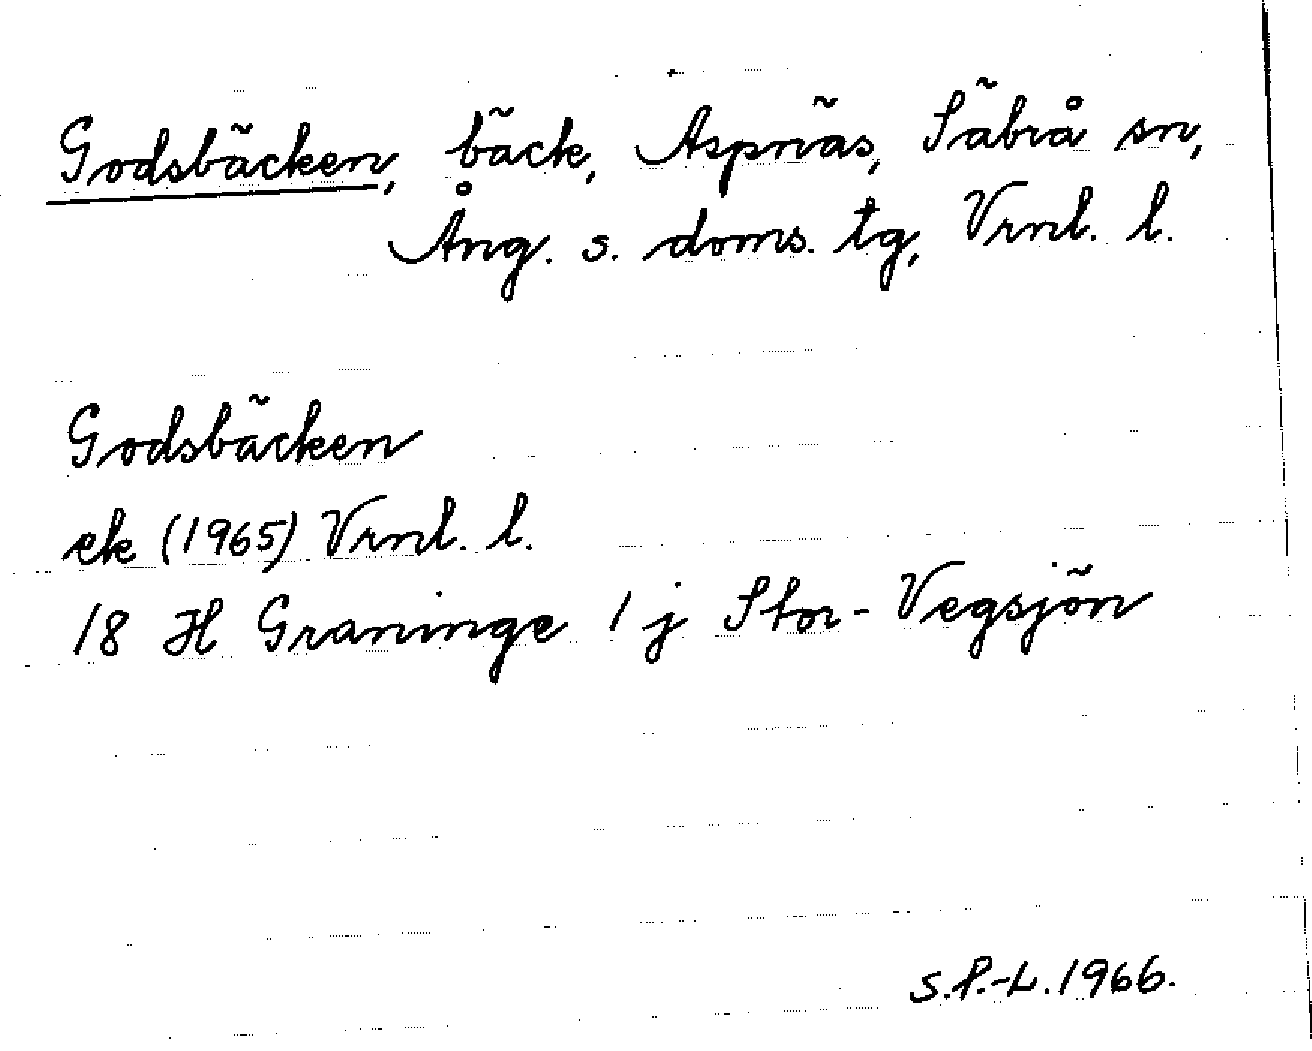 Godsbäcken, bäck, Aspnäs, Säbrå sn,
Ång. s. doms. tg, Vrnl. l.
Godsbäcken
ek (1965) Vrnl. l.
18 H Graninge 1 j Stor-Vegsjön
S.P.-L. 1966.